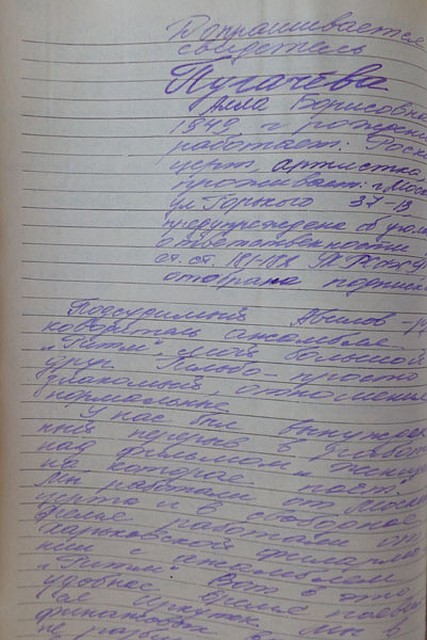 Допрашивается
свидетель
Пугачёва
Алла Борисовна
1949 г рождения
работает: Роскон
церт, артистка
проживает: г. Моск
ул Горького 37-13
предупреждена об уголо
ответственности
ст. ст. 181-182 УК РСФСР
отобрана подписк
Подсудимый Авилов - ру
ководитель ансамбля
"Ритм", мой большой
друг. - просто
знакомый, отношения
нормальные.
У нас был вынужден
ный перерыв в работе
над фильмом "Женщи
на которая поёт."
Мы работали от Москон
церта и в свободное
время работали от
Харьковской филармо
нии с ансамблем
"Ритм" Вот в это
удобное время поехали
в Иркутск. Мы в
финансовых
не